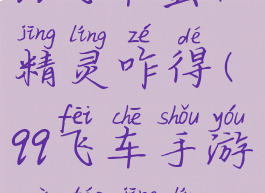 jīng líng zé dé
精灵咋得(
fēi chē shǒu yóu
99飞车手游